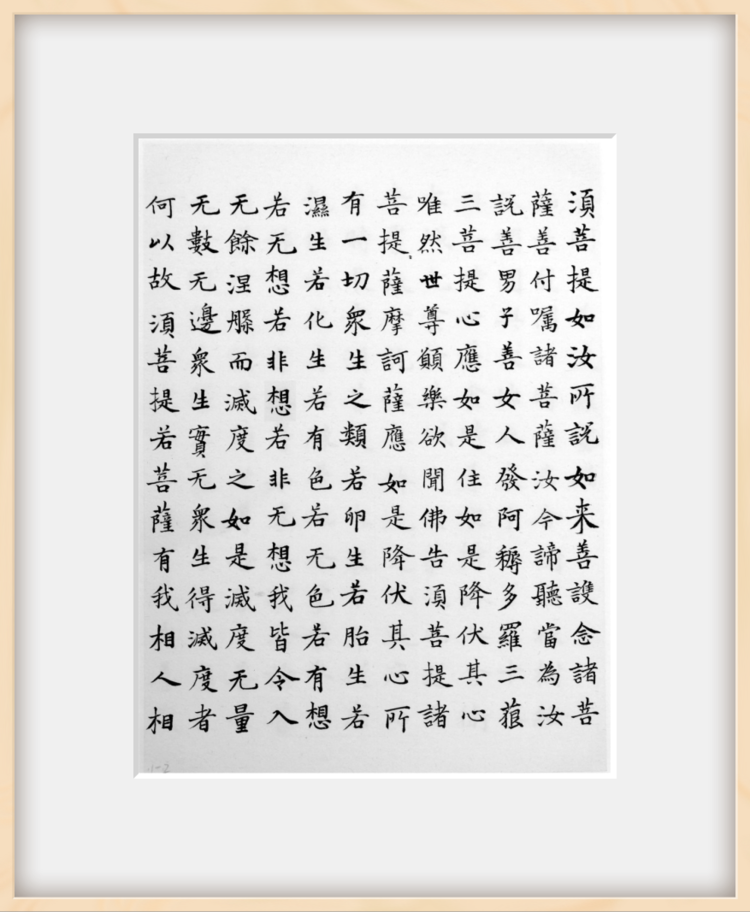 湏菩提如汝所説如来善謢念諸菩
薩善付嘱諸菩薩汝今諦聽當為汝
説善男子善女人發阿耨多羅三藐
三菩提心應如是住如是降伏其心
唯然世尊願樂欲聞佛告湏菩提諸
菩提薩摩訶薩應如是降伏其心所
有一切衆生之類若卵生若胎生若
濕生若化生若有色若无色若有想
若无想若非想若非无想我皆令入
无餘涅槃而滅度之如是滅度无量
无數无邊衆生實无衆生得滅度者
何以故湏菩提若菩薩有我相人相